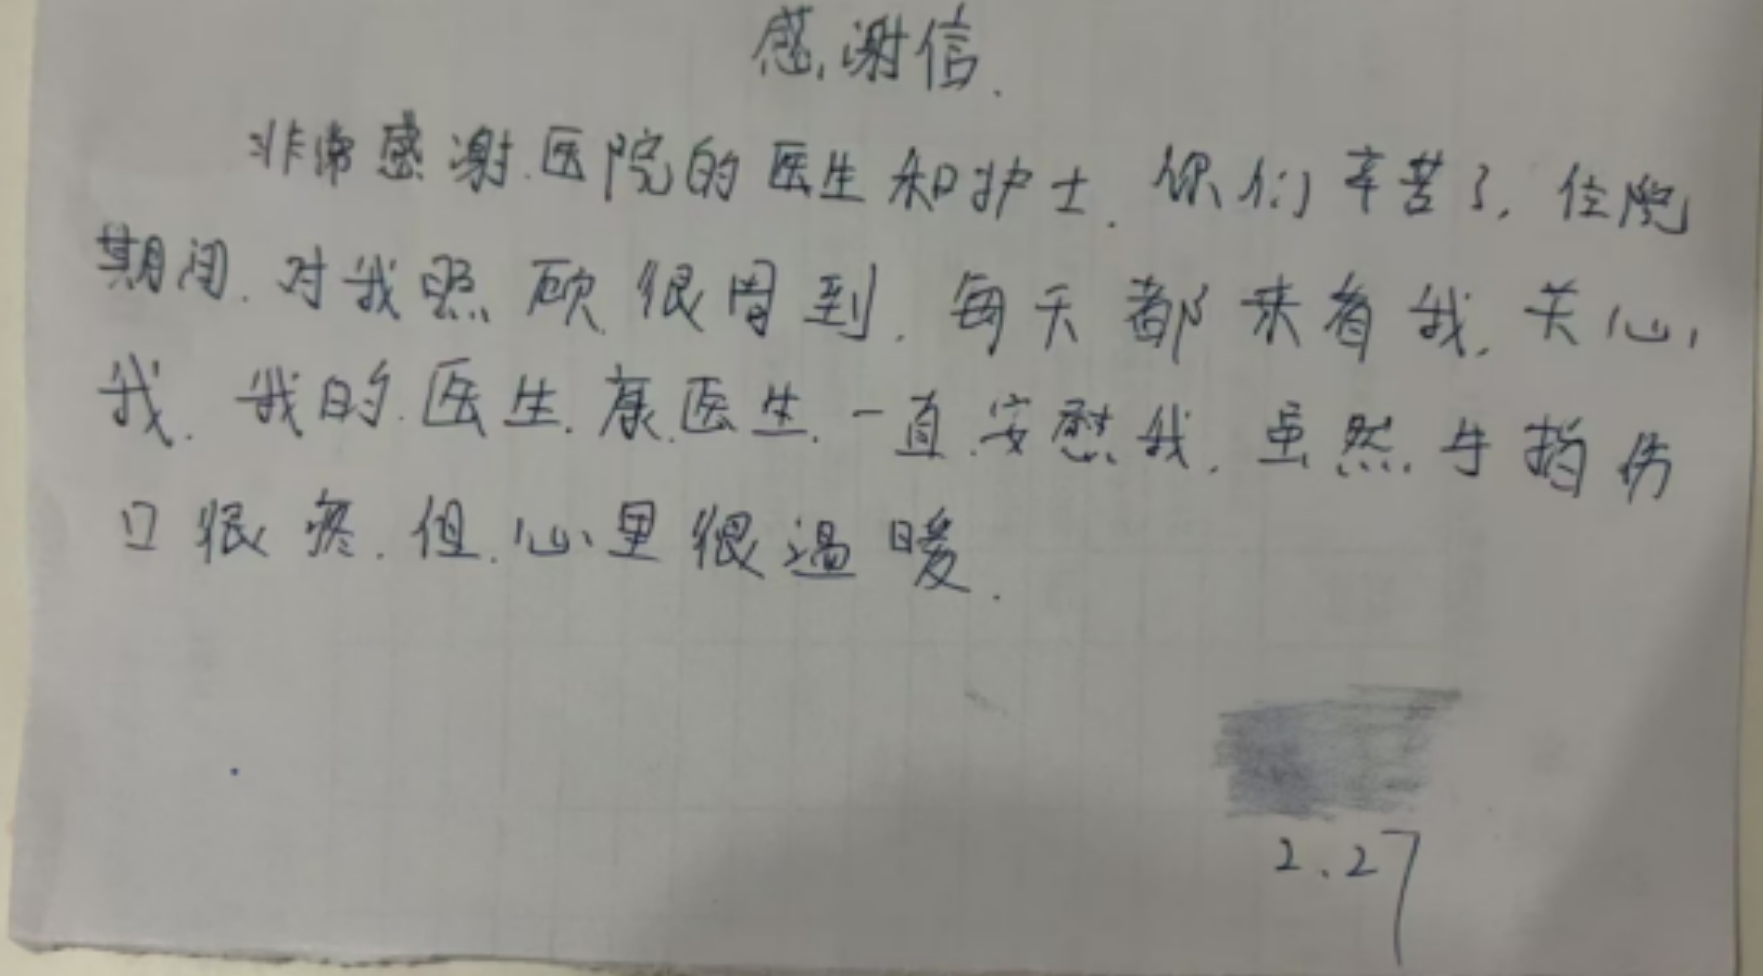 感谢信.
非常感谢.医院的医生和护士.你们辛苦了,住院
期间.对我照顾很周到.每天都来看我.关心
我.我的.医生.康医生.一直安慰我.虽然手指伤
口很疼.但心里很温暖.
2.27